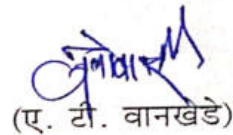 (ए. टी. वानखेडे)